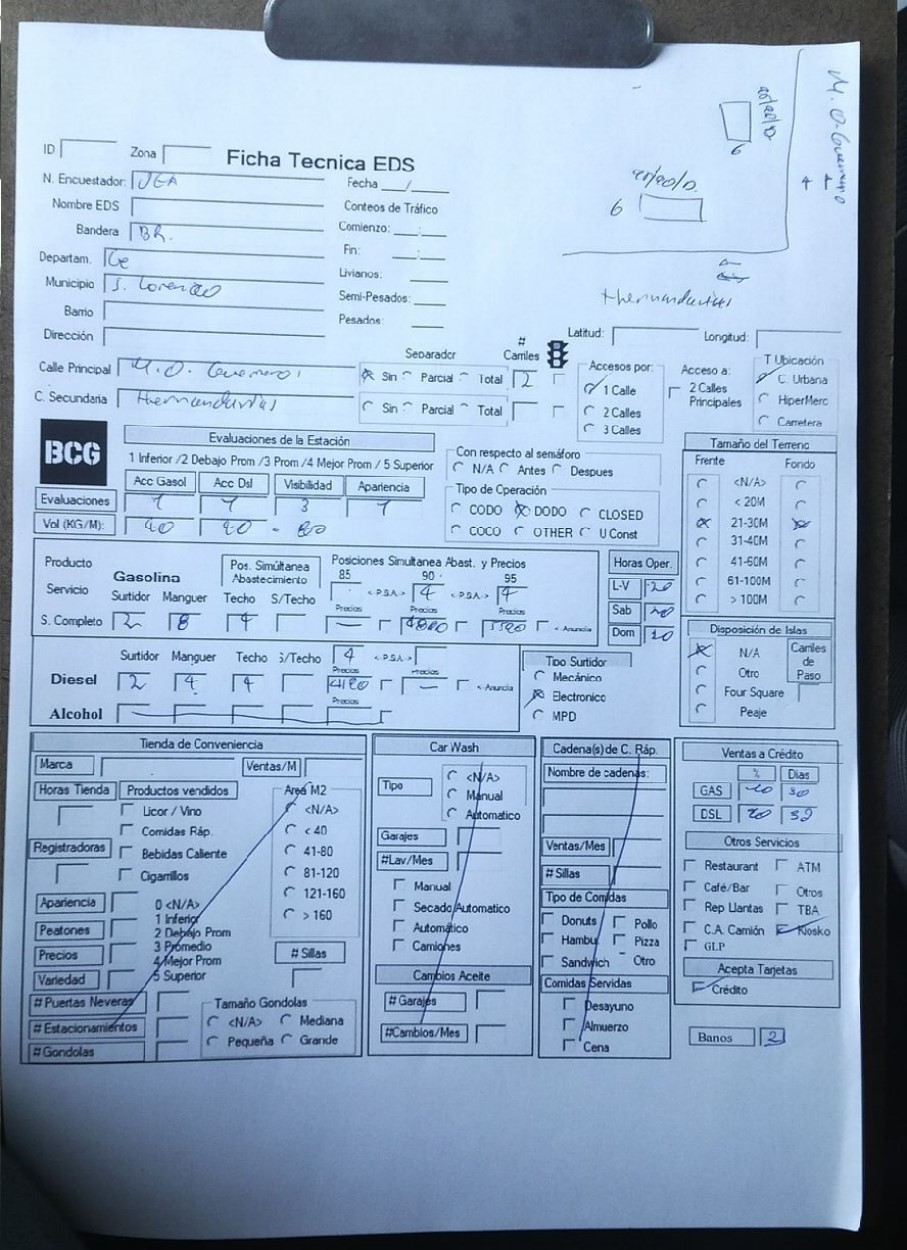 M. O.
6
6
Hernandarias
ID Zona Ficha Tecnica EDS
N. Encuestador: Fecha / 
Nombre EDS Conteos de Tráfico
Bandera BR. Comienzo: :
Departam. Ce Fin: :
Municipio S. Lorenzo Livianos:
Semi-Pesados:
Barrio Pesados:
Dirección Latitud: Longitud:
Calle Principal M. O. Separador # Carriles 2
Sin Parcial Total
C. Secundaria Hernandarias
Sin Parcial Total
Accesos por:
1 Calle
2 Calles
3 Calles
Acceso a:
2 Calles Principales
T Ubicación
C. Urbana
HiperMerc
Carretera
BCG
Evaluaciones de la Estación
1 Inferior /2 Debajo Prom /3 Prom /4 Mejor Prom / 5 Superior
Acc Gasol Acc Dsl Visibilidad Apariencia
Evaluaciones 3
Vol (KG/M):
Con respecto al semáforo
N/A Antes Despues
Tipo de Operación
CODO DODO CLOSED
COCO OTHER U Const
Tamaño del Terreno
Frente Fondo
<N/A>
< 20M
21-30M
31-40M
41-60M
61-100M
> 100M
Producto
Servicio
Gasolina
Pos. Simúltanea Abastecimiento
Posiciones Simultanea Abast. y Precios
85 90 95
Surtidor Manguer Techo S/Techo < P.S.A > 4 < P.S.A > 4
Precios Precios Precios
S. Completo 2 8 4 < Anuncia
Horas Oper.
L-V
Sab
Dom
Surtidor Manguer Techo S/Techo 4 < P.S.A >
Precios Precios
Diesel 2 4 4 < Anuncia
Precios
Alcohol
Tipo Surtidor
Mecánico
Electronico
MPD
Disposición de Islas
N/A
Otro
Four Square
Peaje
Carriles de Paso
Tienda de Conveniencia
Marca Ventas/M
Horas Tienda Productos vendidos
Licor / Vino
Comidas Ráp.
Registradoras Bebidas Caliente
Cigarrillos
Area M2
<N/A>
< 40
41-80
81-120
121-160
> 160
Apariencia 0 <N/A>
1 Inferior
Peatones 2 Debajo Prom
3 Promedio
Precios 4 Mejor Prom
Variedad 5 Superior
# Sillas
# Puertas Neveras
# Estacionamientos
# Gondolas
Tamaño Gondolas
<N/A> Mediana
Pequeña Grande
Car Wash
Tipo
<N/A>
Manual
Automatico
Garajes
#Lav/Mes
Manual
Secado Automatico
Automático
Camiones
Cambios Aceite
# Garajes
#Cambios/Mes
Cadena(s) de C. Ráp.
Nombre de cadenas:
Ventas/Mes
# Sillas
Tipo de Comidas
Donuts Pollo
Hambu. Pizza
Sandwich Otro
Comidas Servidas
Desayuno
Almuerzo
Cena
Ventas a Crédito
% Dias
GAS 30
DSL
Otros Servicios
Restaurant ATM
Café/Bar Otros
Rep Llantas TBA
C.A. Camión Kiosko
GLP
Acepta Tarjetas
Crédito
Banos 2